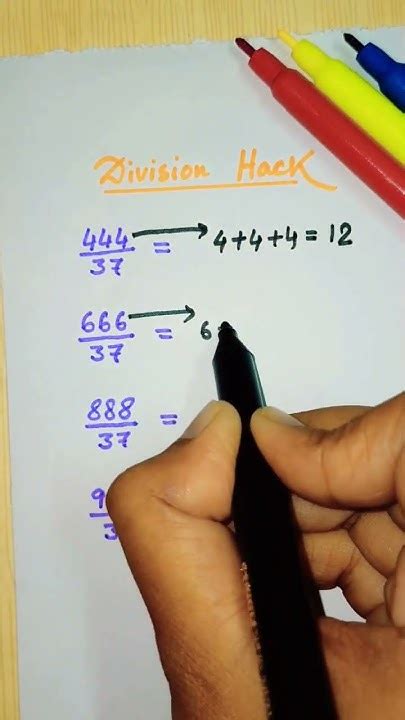 Division Hack
444/37 = → 4+4+4 = 12
666/37 = → 6
888/37 =
9
3